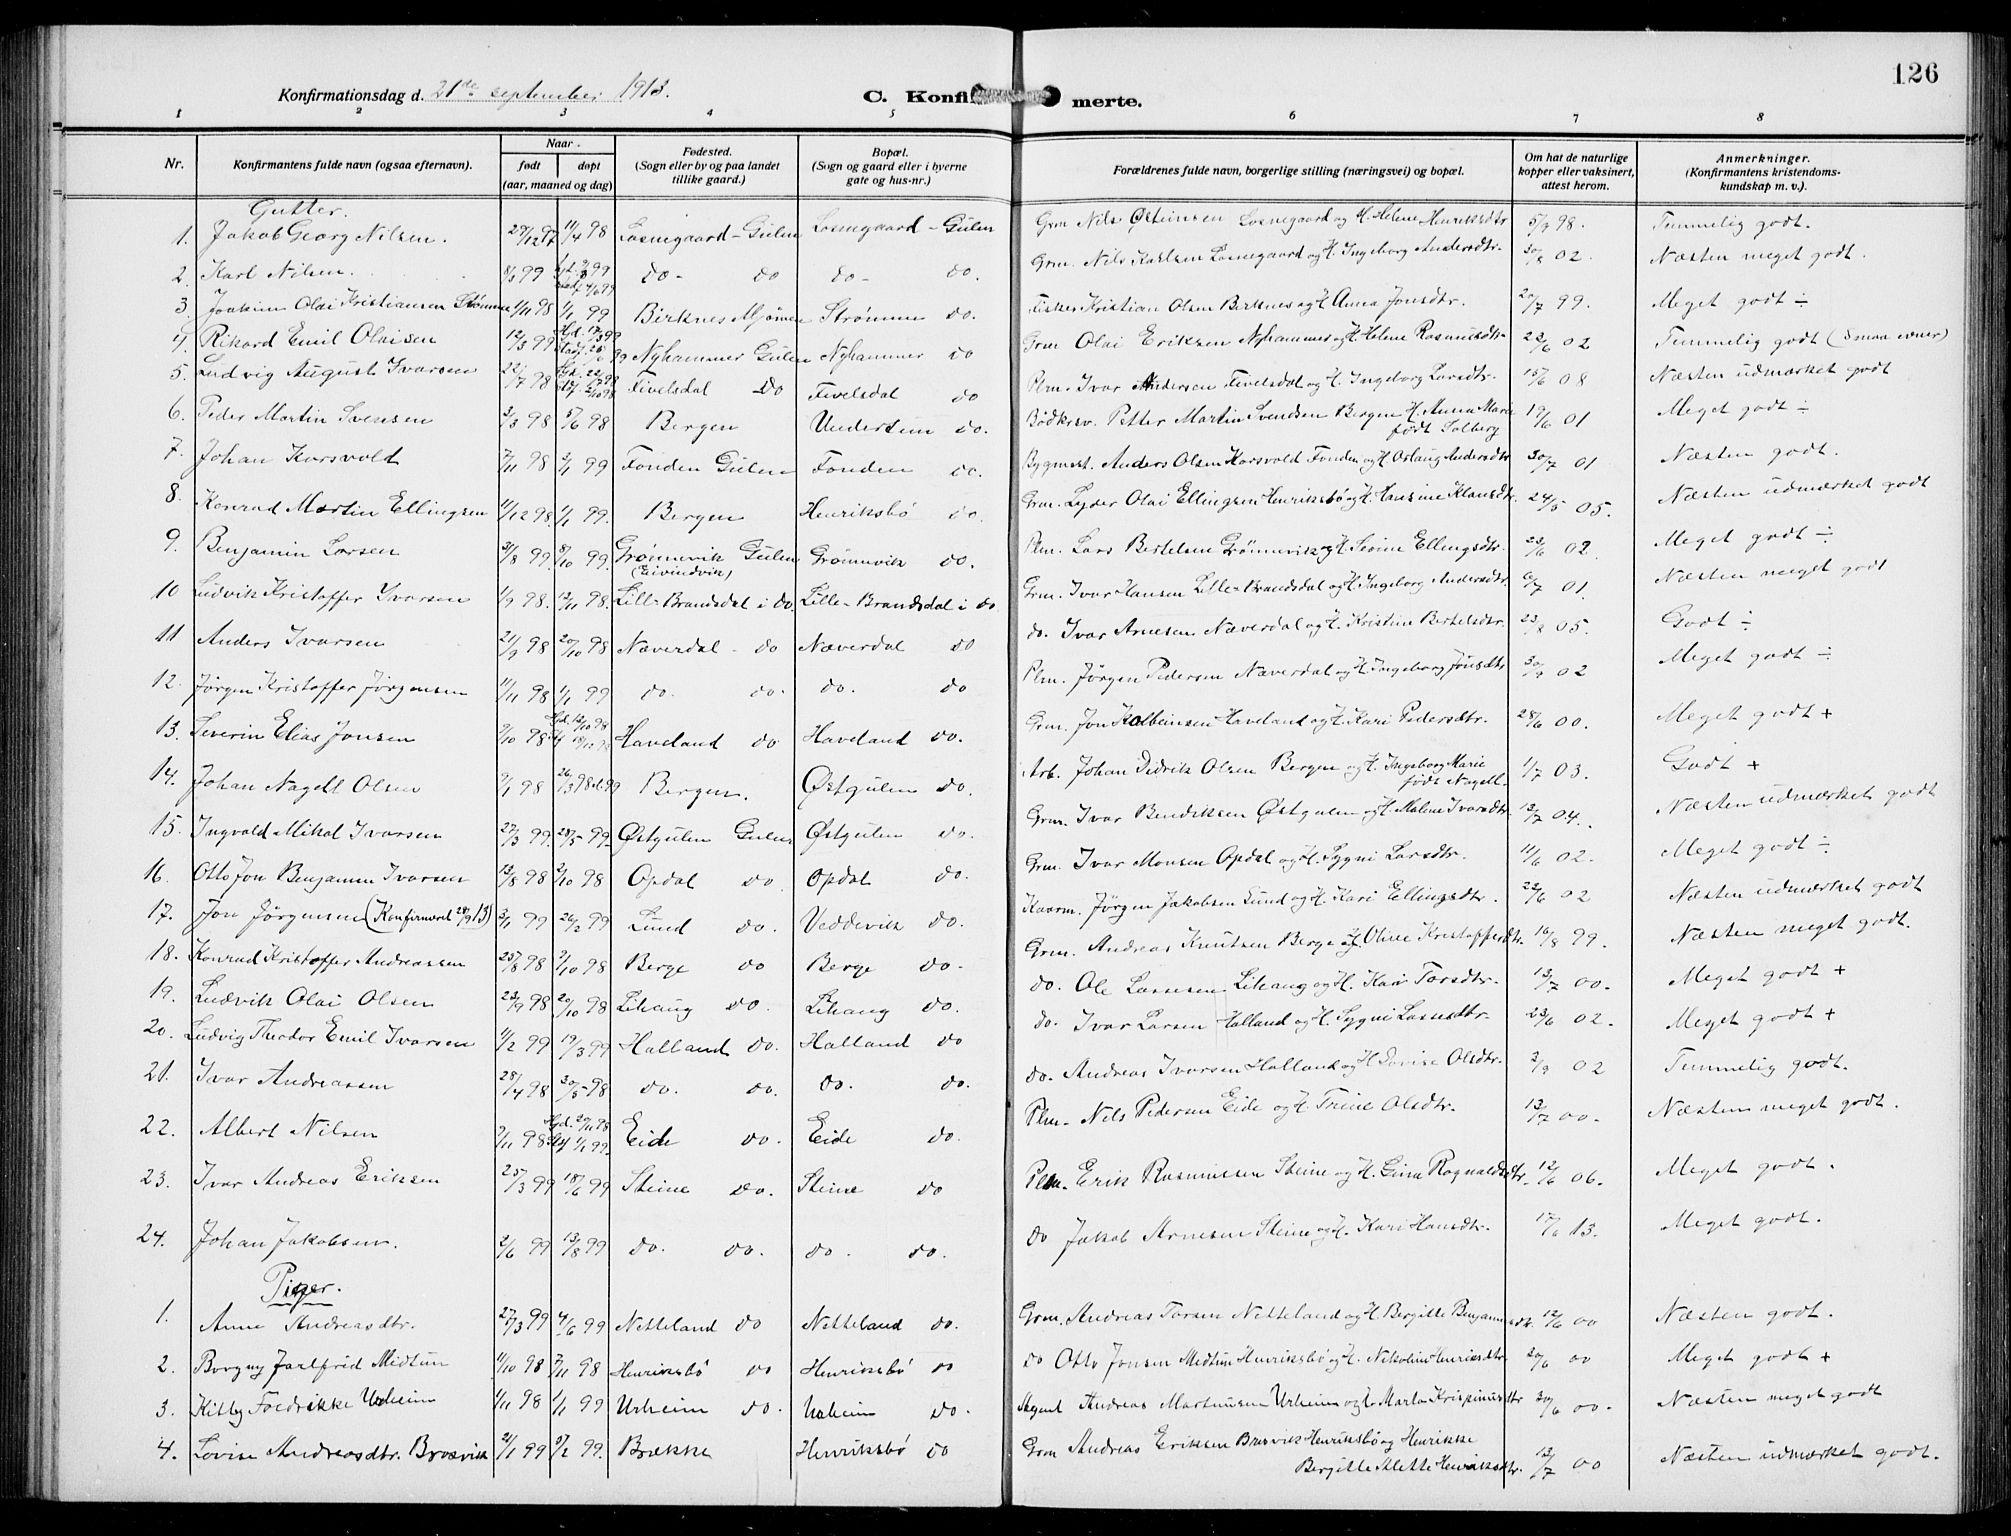 126
Konfirmationsdag d. 21de september 1913. C. Konfi merte.
1 2 3 4 5 6 7 8
Nr. Konfirmantens fulde navn (ogsaa efternavn). Naar født døpt (aar, maaned og dag) Fødested. (Sogn eller by og paa landet tillike gaard.) Bopæl. (Sogn og gaard eller i byerne gate og hus-nr.) Forældrenes fulde navn, borgerlige stilling (næringsvei) og bopæl. Om hat de naturlige kopper eller vaksinert, attest herom. Anmerkninger. (Konfirmantens kristendoms-kundskap m. v.).
Gutter.
1. Jakob Georg Nilsen. 29/12 97 11/4 98 Losnegaard - Gulen Losnegaard - Gulen Grm Nils Østeinsen Losnegaard og H. Helene Henriksdtr 5/9 98. Temmelig godt.
2. Karl Nilsen. 8/3 99 do - do do - do. Grm. Nils Karlsen Losnegaard og H. Ingeborg Andersdtr. 30/8 02. Næsten meget godt.
3. Joakim Olai Kristiansen Strømme 1/11 98 1/1 99 Birknes Mjømen Strømme do. Fisker Kristian Olsen Birknes og H. Anna Jonsdtr. 20/7 99. Meget godt ÷
4. Rikard Emil Olaisen 12/3 99 Hjd. 17/3 99 Nyhammer Gulen Nyhammer do Grm Olai Eriksen Nyhammer og H. Helene Rasmusdtr. 23/6 02 Temmelig godt (smaa evner)
5. Ludvig August Ivarsen 22/7 98 Fivelsdal do Fivelsdal do Plm. Ivar Andersen Fivelsdal og H. Ingeborg Larsdtr. 15/6 08 Næsten udmærket godt
6. Peder Martin Svensen 2/3 98 5/6 98 Bergen Undertun do. Bødkersv. Petter Martin Svendsen Bergen H. Anna Marie født Solberg 19/6 01 Meget godt ÷
7. Johan Korsvold 7/11 98 2/1 99 Fonden Gulen Fonden do. Bygmest. Anders Olsen Korsvold Fonden og H. Oslaug Andersdtr 30/7 01 Næsten godt.
8. Konrad Martin Ellingsen 11/12 98. 1/1 99. Bergen Henriksbø do. Grm. Lyder Olai Ellingsen Henriksbø og H. Hansine Klausdtr. 24/5 05. Næsten udmærket godt
9. Benjamin Larsen 31/8 99. 8/10 99. Grønnevik Gulen (Eivindvik) Grønnevik do. Plm. Lars Bertelsen Grønnevik og H. Sevine Ellingsdtr. 23/6 02. Meget godt ÷
10 Ludvik Kristoffer Ivarsen 1/9 98. 13/11 98. Lille-Brandsdal i do. Lille-Brandsdal i do Grm. Ivar Hansen Lille-Brandsdal og H. Ingeborg Andersdtr. 6/7 01. Næsten meget godt
11 Anders Ivarsen 21/9 98 20/10 98 Næverdal - do Næverdal do do. Ivar Arnesen Næverdal og H. Kristine Bertelsdtr. 23/8 05. Godt ÷
12. Jørgen Kristoffer Jørgensen 11/11 98 1/1 99 do. do. do. do Plm. Jørgen Pedersen Næverdal og H. Ingeborg Jonsdtr 30/9 02 Meget godt ÷
13. Severin Elias Jonsen 9/10 98 Hjd. 12/10 98 Haveland do Haveland do. Grm. Jon Kolbeinsen Haveland og H. Kari Pedersdtr. 28/6 00. Meget godt +
14. Johan Nagell Olsen 9/1 98 26/3 98 Bergen. Østgulen do. Arb. Johan Didrik Olsen Bergen og H. Ingeborg Marie født Nagell 1/7 03. Godt +
15. Ingvald Mikal Ivarsen 27/3 99. 28/5 99. Østgulen Gulen Østgulen do. Grm. Ivar Bendiksen Østgulen og H. Malene Ivarsdtr. 13/7 04. Næsten udmærket godt
16. Otto Jon Benjamin Ivarsen 13/8 98 2/10 98 Opdal do. Opdal do. Grm. Ivar Monsen Opdal og H. Sygni Larsdtr. 11/6 02. Meget godt ÷
17. Jon Jørgensen (Konfirmeret 28/9 13) 3/1 99 26/2 99 Lund do. Veddevik do. Kaarm. Jørgen Jakobsen Lund og H. Kari Ellingsdtr. 23/6 02 Næsten udmærket godt
18. Konrad Kristoffer Andreassen 25/8 98 2/10 98 Berge do Berge do. Grm. Andreas Knutsen Berge og H. Oline Kristoffersdtr. 16/8 99. Næsten meget godt.
19. Ludvik Olai Olsen 23/9 98 20/10 98 Lihaug do. Lihaug do. do. Ole Larsen Lihaug og H. Kari Torsdtr. 13/7 00. Meget godt +
20. Ludvig Theodor Emil Ivarsen 11/2 99 19/3 99 Halland do. Halland do do. Ivar Larsen Halland og H. Sygni Larsdtr. 23/6 02. Meget godt +
21. Ivar Andreassen 28/4 98 30/5 98 do. do. do. do. do. Andreas Ivarsen Halland og H. Lovise Olsdtr. 2/9 02 Temmelig godt.
22. Albert Nilsen 9/11 98 Hjd. 20/11 98 Stf 1/1 99 Eide do. Eide do. Plm. Nils Pedersen Eide og H. Trine Olsdtr. 13/7 00. Næsten meget godt.
23. Ivar Andreas Eriksen 25/3 99 18/6 99 Steine do. Steine do Plm. Erik Rasmussen Steine og H. Gina Ragnaldsdtr. 12/6 06. Meget godt.
24. Johan Jakobsen. 2/6 99 13/8 99 do. do. do. do. do Jakob Arnesen Steine og H. Kari Hansdtr. 17/6 13. Meget godt.
Piger.
1. Anne Andreasdtr. 27/3 99 4/6 99 Netteland do Netteland do. Grm. Andreas Torsen Netteland og H. Bergitte Benjaminsdtr. 12/6 00 Næsten godt.
2. Borgny Jarlfrid Midtun 11/10 98 7/11 98 Henriksbø do Henriksbø do do Otto Jonsen Midtun Henriksbø og H. Nikoline Henriksdtr. 20/6 00 Meget godt +
3. Kitty Fredrikke Urheim 1/11 98 1/1 99 Urheim do. Urheim do. Agent Andreas Martinusen Urheim og H. Marta Krispinusdtr 30/6 00. Næsten meget godt
4. Lovise Andreasdtr. Brosvik 21/1 99 5/2 99. Brække Henriksbø do Grm Andreas Eriksen Brosvik Henriksbø og Henrikke Bergitte Alette Henriksdtr. 13/7 00 Næsten udmærket godt.